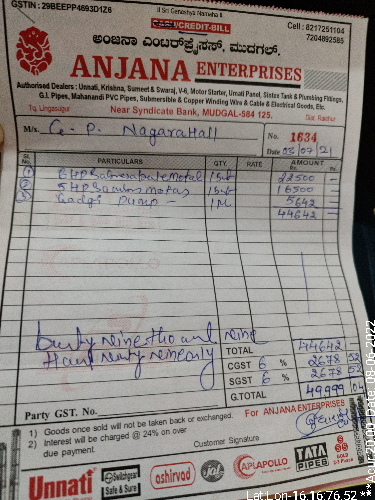 GSTIN : 29BEEPP4693D1Z6
II Sri Ganeshya Namaha II
CASH/CREDIT-BILL
Cell : 8217251104
7204892585
ಅಂಜನಾ ಎಂಟರ್‌ಪ್ರೈಸಸ್, ಮುದಗಲ್.
ANJANA ENTERPRISES
Authorised Dealers : Unnati, Krishna, Sumeet & Swaraj, V-6, Motor Starter, Umati Panel, Sistex Tank & Plumbing Fittings,
G.I. Pipes, Mahanandi PVC Pipes, Submersible & Copper Winding Wire & Cable & Electrical Goods, Etc.
Tq. Lingasugur Near Syndicate Bank, MUDGAL-584 125. Dist. Raichur
M/s. G. P. Nagarahall
No. 1634
Date 02/07/21
SL. No. PARTICULARS QTY. RATE AMOUNT
1 22500
2 5HP 16500
3 Pump 5642
44642
TOTAL 44642
CGST 6 % 2678 52
SGST 6 % 2678 52
G.TOTAL 49999 04
Party GST. No.
For ANJANA ENTERPRISES
1) Goods once sold will not be taken back or exchanged.
2) Interest will be charged @ 24% on over due payment.
Customer Signature
Unnati
Switchgear
Safe & Sure
ashirvad
Jal
APL APOLLO
TATA PIPES
GOLD
Date: 08-06-2022
Lat Lon-16,16,76.52